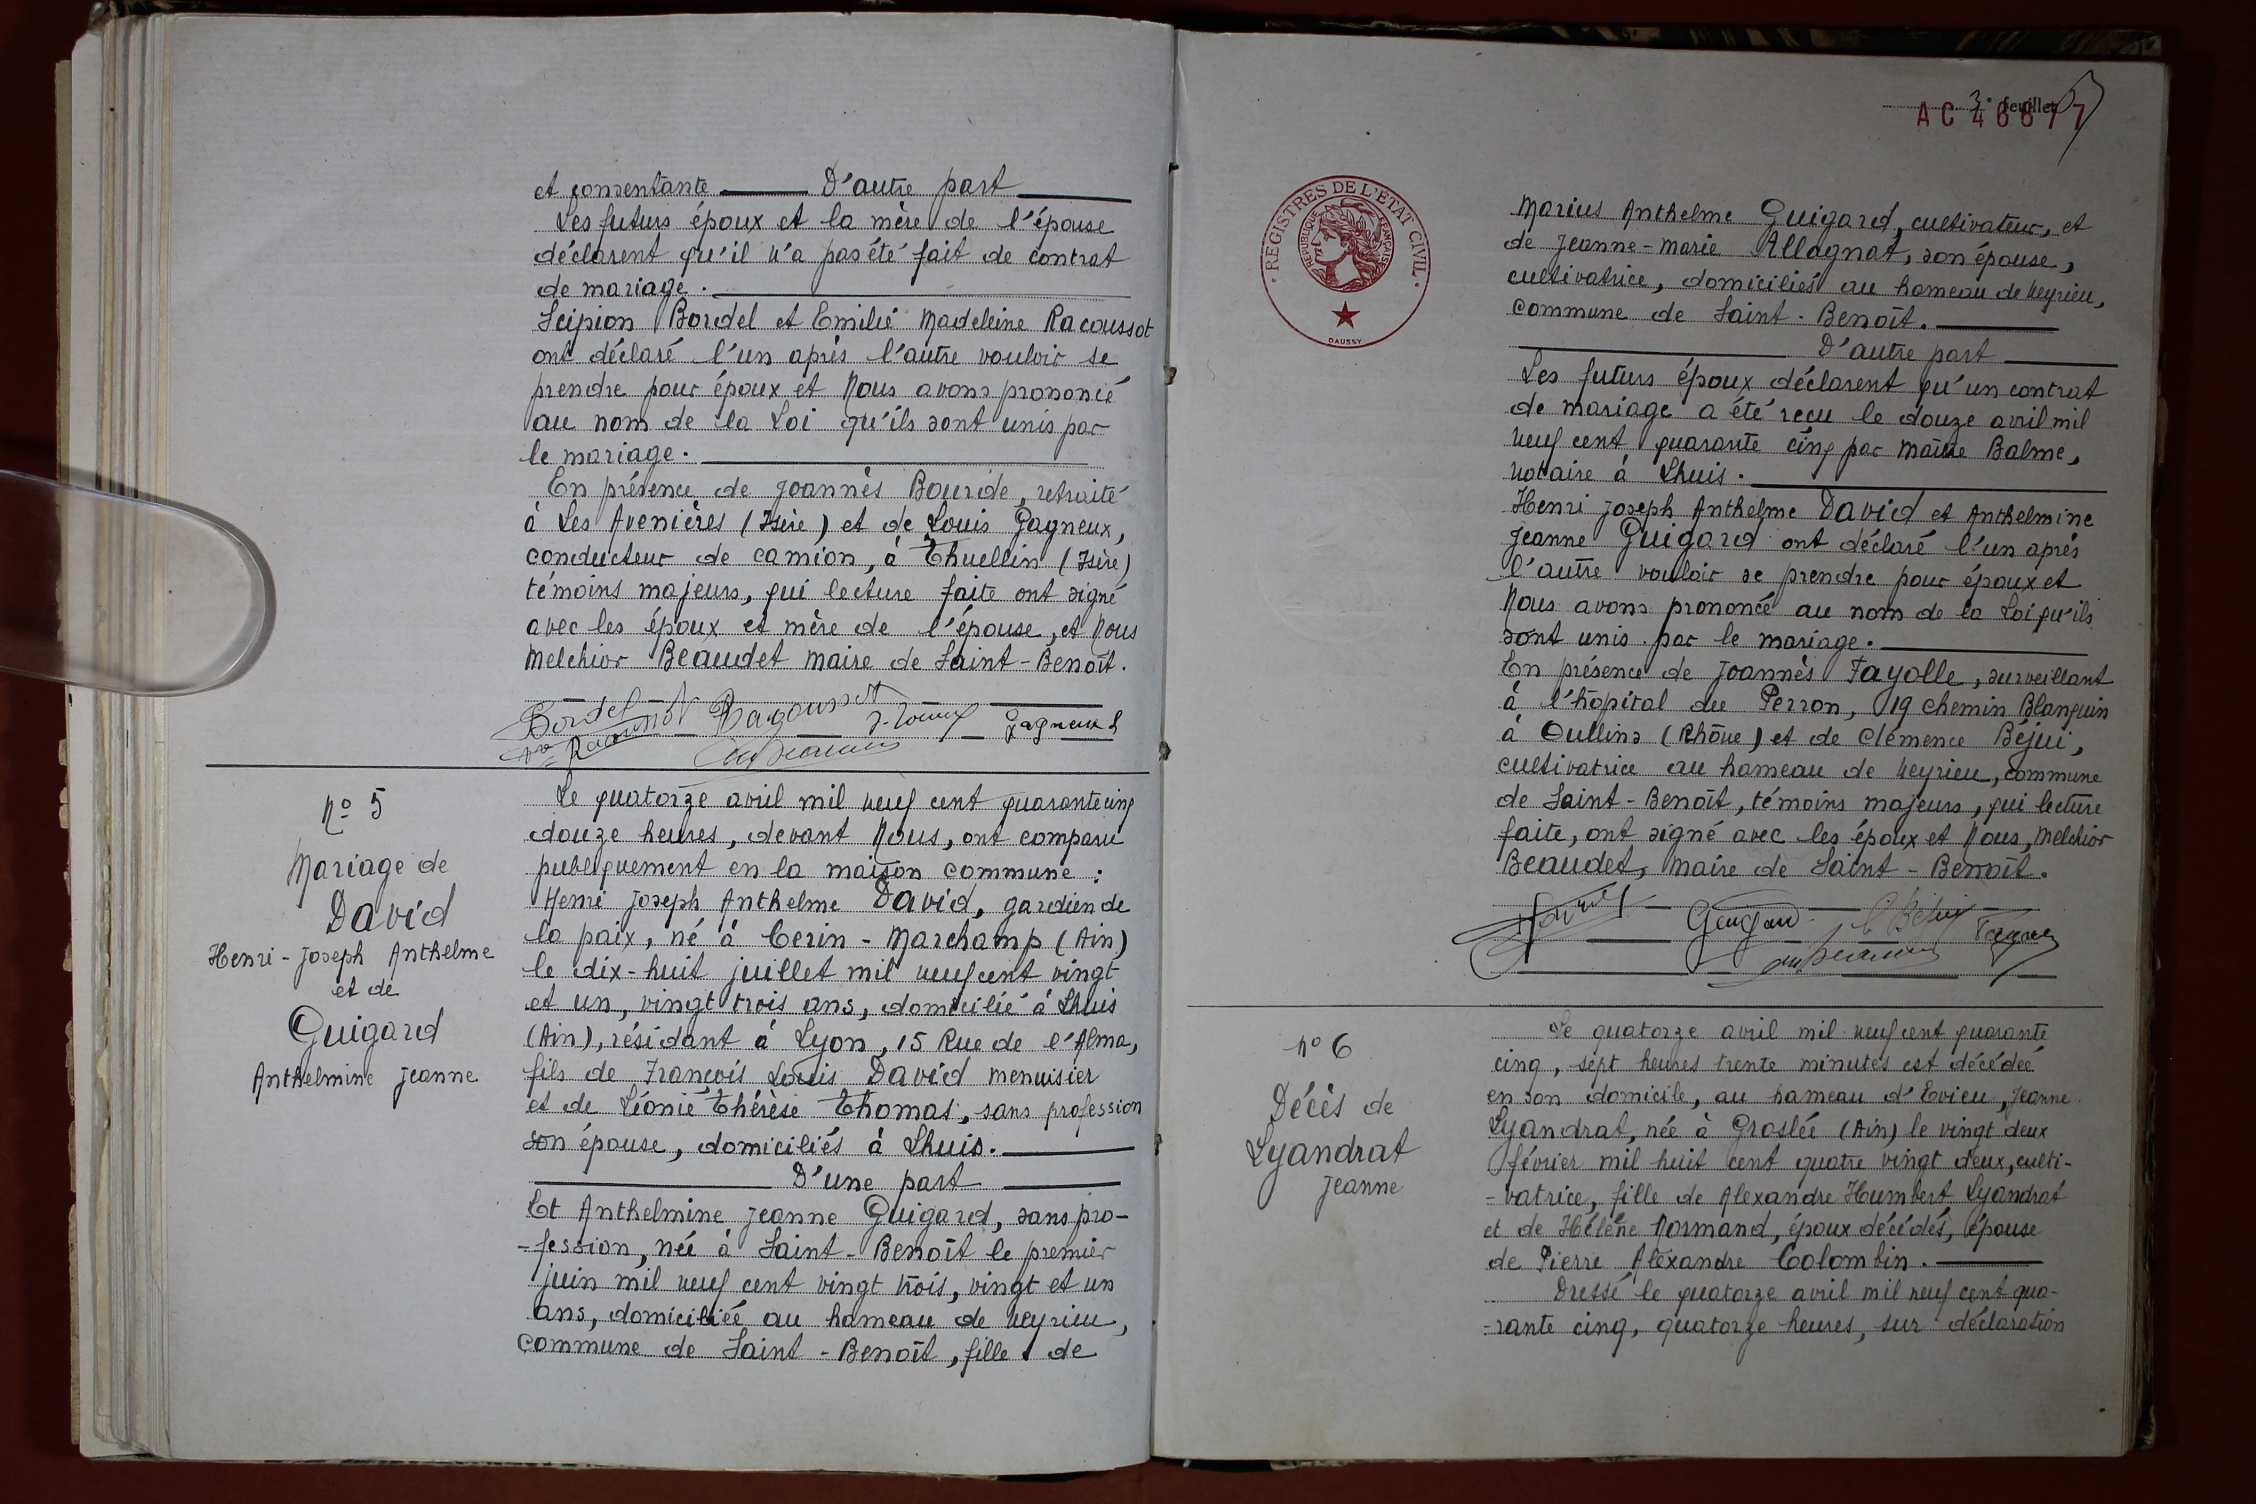 et consentante D'autre part
Les futurs époux et la mère de l'épouse
déclarent qu'il n'a pas été fait de contrat
de mariage.
Scipion Bordel et Emilie Madeleine Racoussot
ont déclaré l'un après l'autre vouloir se
prendre pour époux et Nous avons prononcé
au nom de la Loi qu'ils sont unis par
le mariage.
En présence de Joannès Bourde, retraité
à Les Avenières (Isère) et de Louis Gagneux,
conducteur de camion, à Thuellin (Isère)
témoins majeurs, qui lecture faite ont signé
avec les époux et mère de l'épouse, et Nous
Melchior Beaudet maire de Saint-Benoît.
Bordel Racoussot Gagneux L
No 5
Mariage de
David
Henri-Joseph Anthelme
et de
Guigard
Anthelmine Jeanne
Le quatorze avril mil neuf cent quarante cinq
douze heures, devant Nous, ont comparu
publiquement en la maison commune :
Henri Joseph Anthelme David, gardien de
la paix, né à Cerin - Marchamp (Ain)
le dix-huit juillet mil neuf cent vingt
et un, vingt trois ans, domicilié à Lhuis
(Ain), résidant à Lyon, 15 Rue de l'Alma,
fils de François Louis David menuisier
et de Léonie Thérèse Thomas, sans profession
son épouse, domiciliés à Lhuis.
D'une part
Et Anthelmine Jeanne Guigard, sans pro-
-fession, née à Saint-Benoît le premier
juin mil neuf cent vingt trois, vingt et un
ans, domiciliée au hameau de Veyrieu,
commune de Saint-Benoît, fille de
3e feuillet
AC 46877
REGISTRES DE L'ÉTAT CIVIL
RÉPUBLIQUE FRANÇAISE
DAUSSY
Marius Anthelme Guigard, cultivateur, et
de Jeanne-Marie Allagnat, son épouse,
cultivatrice, domiciliés au hameau de Veyrieu,
commune de Saint-Benoît.
D'autre part
Les futurs époux déclarent qu'un contrat
de mariage a été reçu le douze avril mil
neuf cent quarante cinq par Maître Balme,
notaire à Lhuis.
Henri Joseph Anthelme David et Anthelmine
Jeanne Guigard ont déclaré l'un après
l'autre vouloir se prendre pour époux et
Nous avons prononcé au nom de la Loi qu'ils
sont unis par le mariage.
En présence de Joannès Fayolle, surveillant
à l'hôpital du Perron, 19 chemin Blanquin
à Oullins (Rhône) et de Clémence Béjui,
cultivatrice au hameau de Veyrieu, commune
de Saint-Benoît, témoins majeurs, qui lecture
faite, ont signé avec les époux et Nous, Melchior
Beaudet, maire de Saint-Benoît.
David Guigard C Béjui
No 6
Décès de
Lyandrat
Jeanne
Le quatorze avril mil neuf cent quarante
cinq, sept heures trente minutes est décédée
en son domicile, au hameau d'Evieu, Jeanne
Lyandrat, née à Groslée (Ain) le vingt deux
février mil huit cent quatre vingt deux, culti-
-vatrice, fille de Alexandre Humbert Lyandrat
et de Hélène Normand, époux décédés, épouse
de Pierre Alexandre Colombin.
Dressé le quatorze avril mil neuf cent qua-
-rante cinq, quatorze heures, sur déclaration